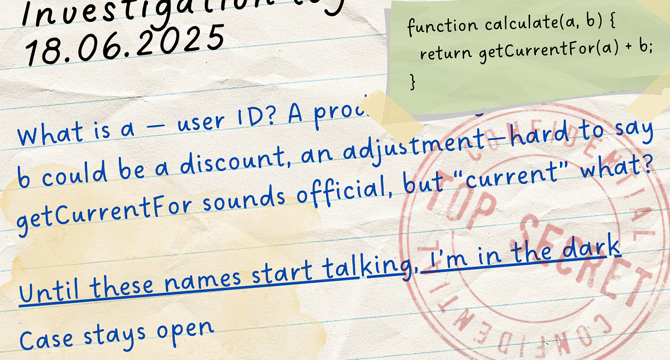 Investigation log
18.06.2025
function calculate(a, b) {
return getCurrentFor(a) + b;
}
What is a – user ID? A
b could be a discount, an adjustment–hard to say
getCurrentFor sounds official, but "current" what?
Until these names start talking, I'm in the dark
Case stays open
CONFIDENTIAL
TOP SECRET
CONFIDENTIAL